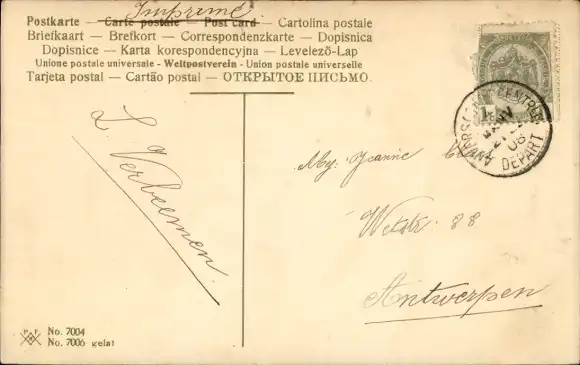 Imprimé
Postkarte — Carte postale — Post card — Cartolina postale
Briefkaart — Brefkort — Correspondenzkarte — Dopisnica
Dopisnice — Karta korespondencyjna — Levelező-Lap
Unione postale universale - Weltpostverein - Union postale universelle
Tarjeta postal — Cartão postal — ОТКРЫТОЕ ПИСЬМО.
L. Verbeemen.
ANVERS CENTRE
JANV
08
DEPART
Mej. Jeanne
Wetstr 88
Antwerpen
No. 7004
No. 7006 gelat